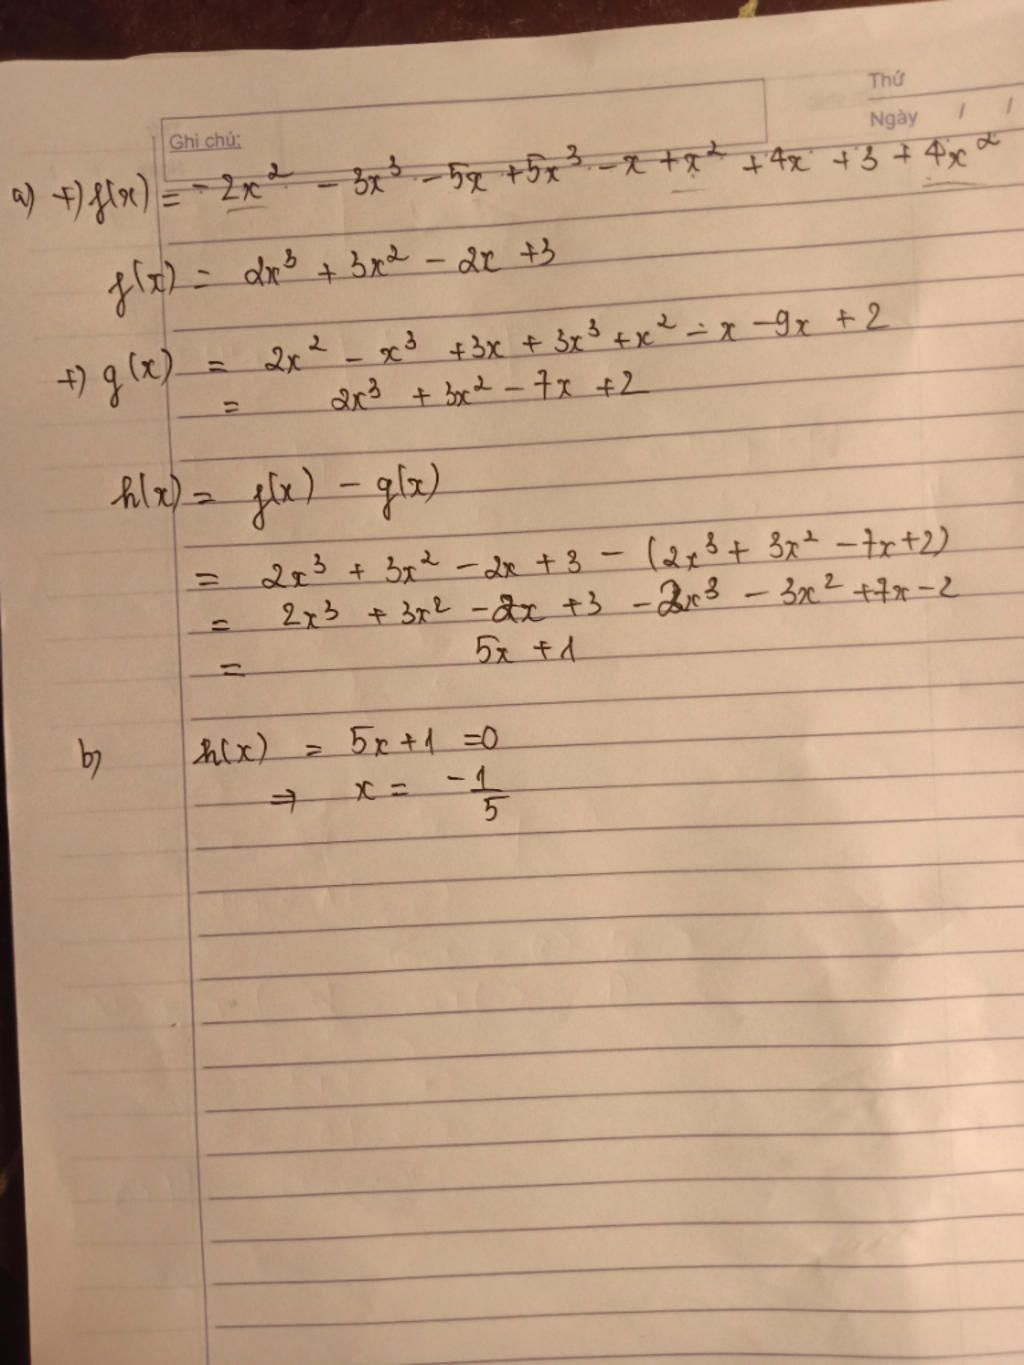 Thứ
Ghi chú:
Ngày / /
a) +) f(x) = -2x² - 3x³ - 5x + 5x³ - x + x² + 4x + 3 + 4x²
f(x) = 2x³ + 3x² - 2x + 3
+) g(x) = 2x² - x³ + 3x + 3x³ + x² - x - 9x + 2
= 2x³ + 3x² - 7x + 2
h(x) = f(x) - g(x)
= 2x³ + 3x² - 2x + 3 - (2x³ + 3x² - 7x + 2)
= 2x³ + 3x² - 2x + 3 - 2x³ - 3x² + 7x - 2
= 5x + 1
b) h(x) = 5x + 1 = 0
⇒ x = -1/5